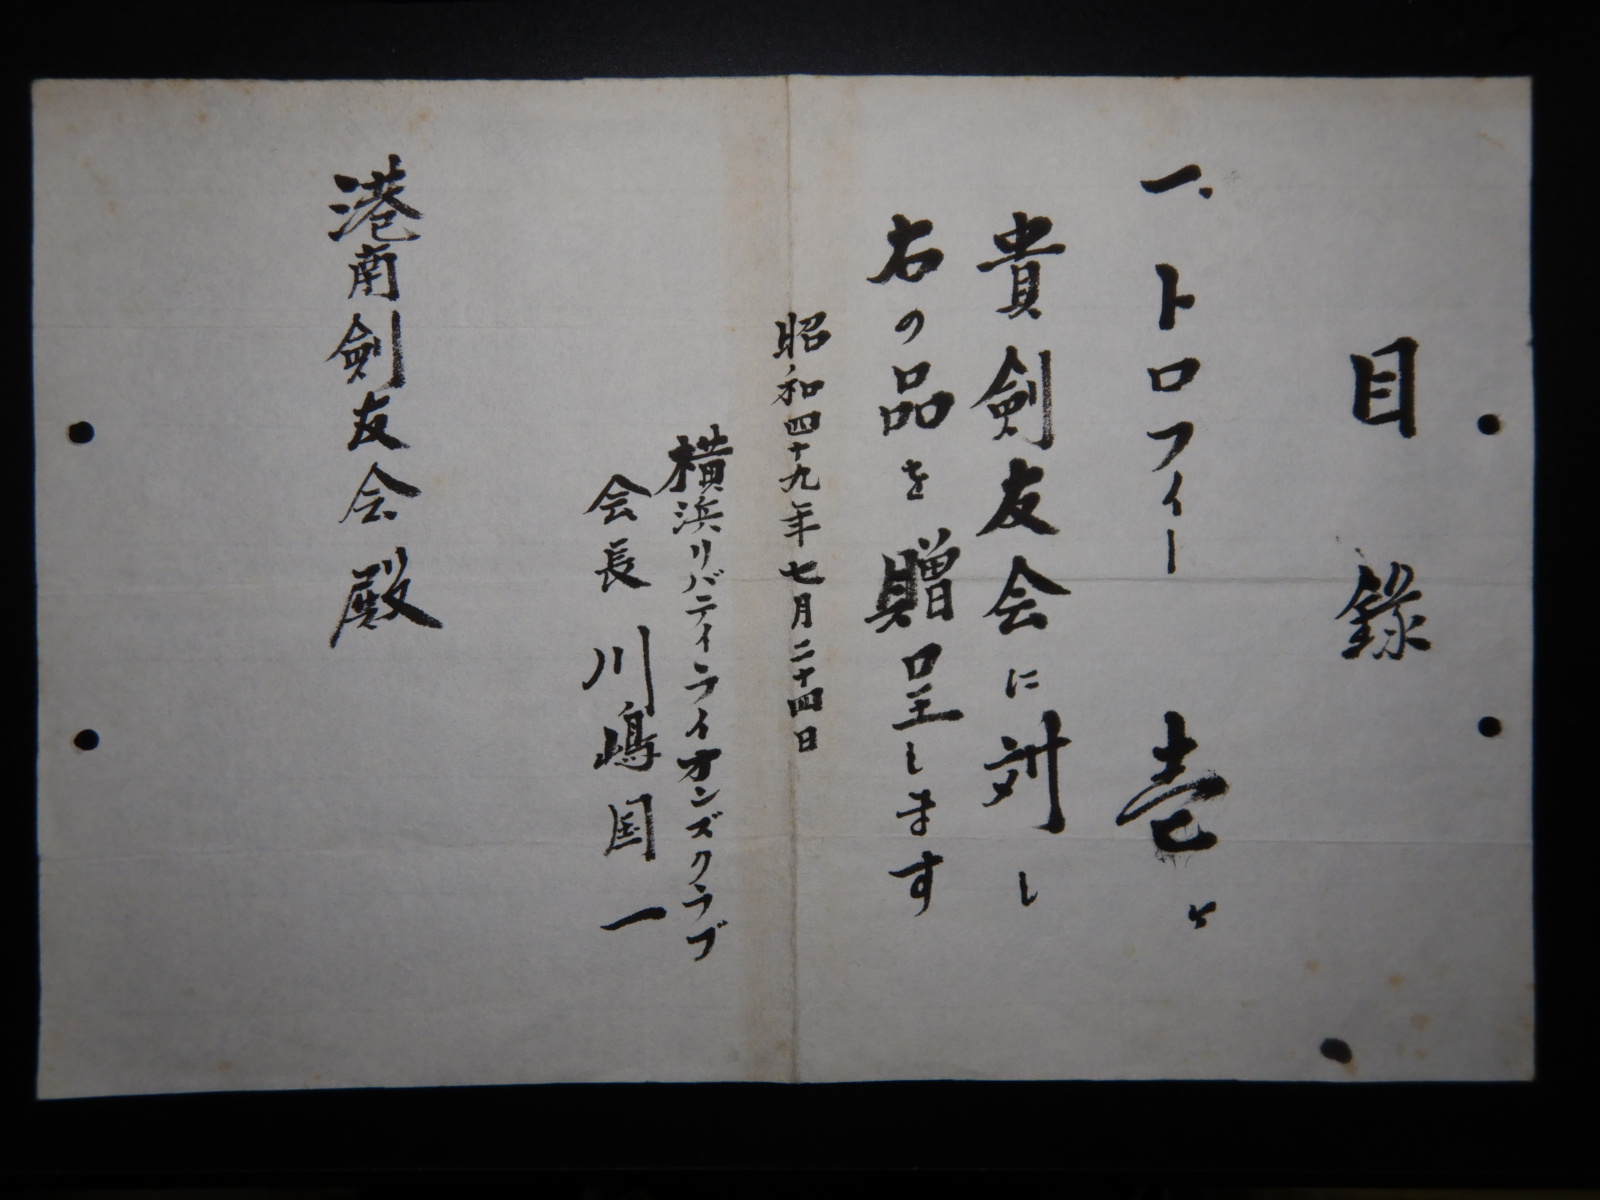 目錄
一、トロフィー 壱ヶ
貴劍友会に対し
右の品を贈呈します
昭和四十九年七月二十四日
横浜リバティライオンズクラブ
会長 川嶋国一
港南劍友会殿